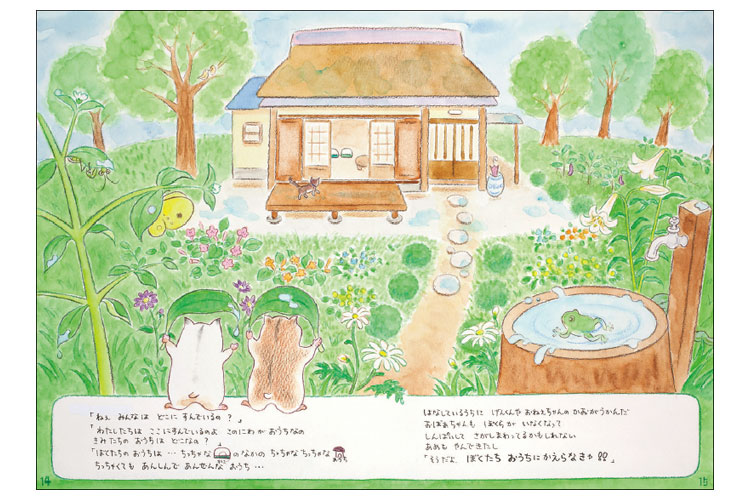 「ねぇ みんなは どこに すんでいるの ？」
「わたしたちは ここにすんでいるのよ このにわが おうちなの
きみたちの おうちは どこなの ？」
「ぼくたちの おうちは … ちっちゃな のなかの ちっちゃな ちっちゃな
ちっちゃくても あんしんで あんぜんな おうち …
はなしているうちに げんくんや おねえちゃんの かおがうかんだ
おばあちゃんも ぼくらが いなくなって
しんぱいして さがしまわってるかもしれない
あめも やんできたし
「そうだよ ぼくたち おうちにかえらなきゃ !!」
14
15